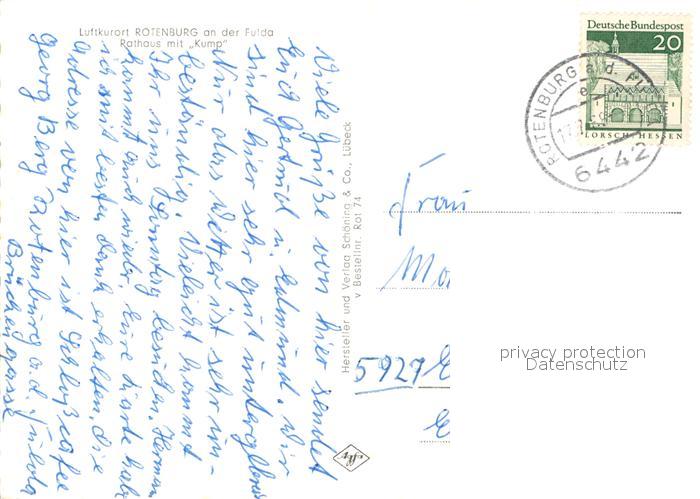 Luftkurort ROTENBURG an der Fulda
Rathaus mit „Kump"
Viele Grüße von hier sendet
Euch Gertrud u. Edmund. Wir
sind hier sehr gut untergebracht
Nur das Wetter ist sehr un-
beständig. Vieleicht kommt
Ihr uns Sonntag besuchen. Hermann
kommt auch wieder. Eure Karte habe
ich mit besten Dank erhalten, die
Adresse von hier ist Schloßcafee
Georg Berg Rotenburg a.d. Fulda
Brückengasse
Hersteller und Verlag Schöning & Co., Lübeck
v Bestellnr. Rot 74
Deutsche Bundespost
20
LORSCH/HESSEN
ROTENBURG a.d. FU
17.
6442
Frau
5927 E
E
privacy protection
Datenschutz